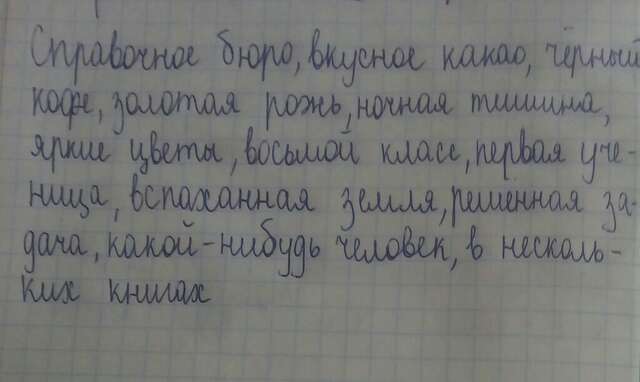 Справочное бюро, вкусное какао, чёрный
кофе, золотая рожь, ночная тишина,
яркие цветы, восьмой класс, первая уче-
ница, вспаханная земля, решённая за-
дача, какой-нибудь человек, в несколь-
ких книгах